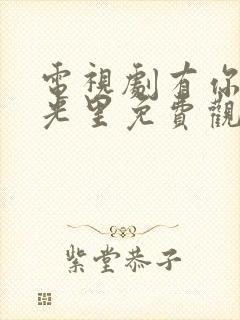 電視劇有你
光里免費觀
紫堂恭子